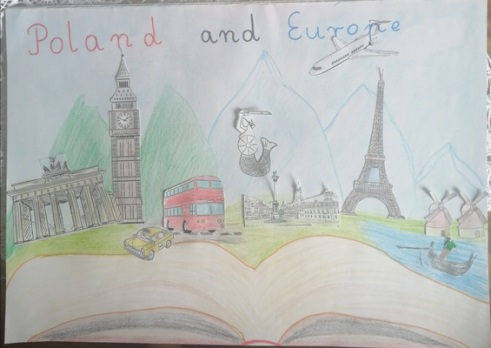 Poland and Europe